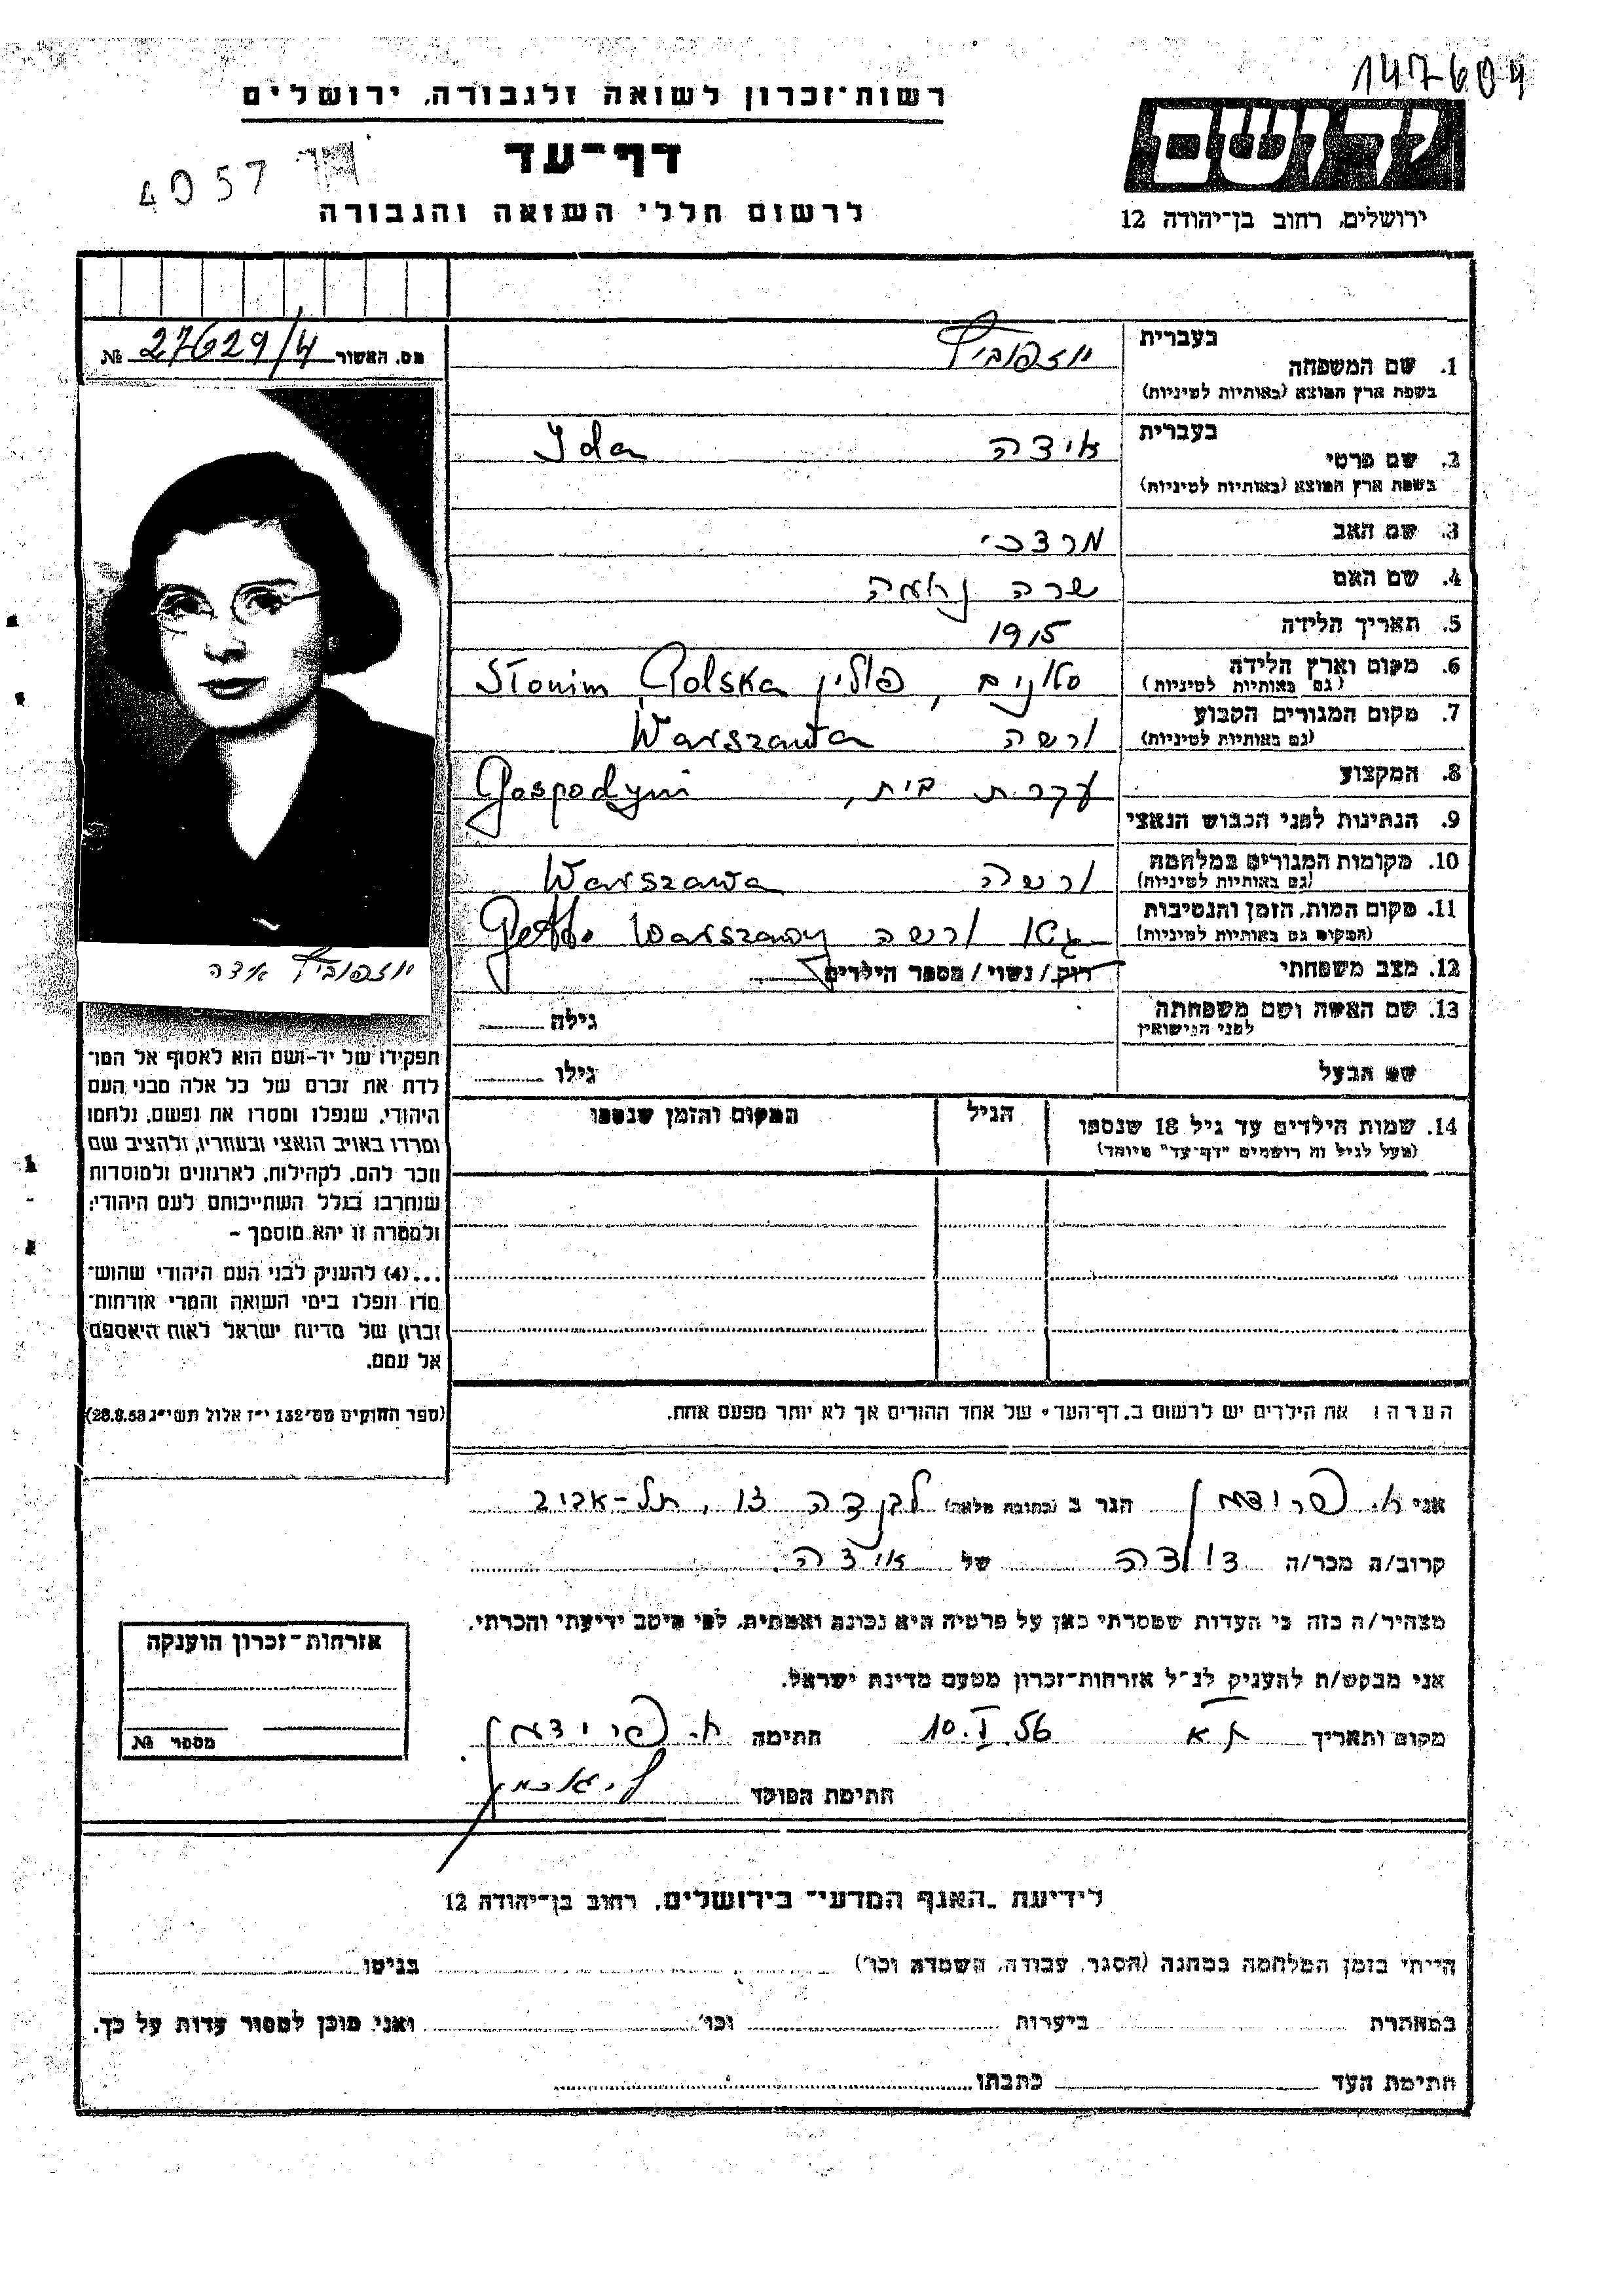 147604
רשות־זכרון לשואה ולגבורה, ירושלים
ידושם
דף־עד
4057
לרשום חללי השואה והגבורה
ירושלים, רחוב בן־יהודה 12
מס. האשור № 27629/4
בעברית
1. שם המשפחה יוזפוביץ
(בשפת ארץ המוצא (באותיות לטיניות
בעברית
2. שם פרטי אידה Ida
(בשפת ארץ המוצא (באותיות לטיניות
3. שם האב מרדכי
4. שם האם שרה נחמה
5. תאריך הלידה 1915
6. מקום וארץ הלידה סלונים, פולין Słonim Polska
(גם באותיות לטיניות)
7. מקום המגורים הקבוע ורשה Warszawa
(גם באותיות לטיניות)
8. המקצוע עקרת בית, Gospodyni
9. הנתינות לפני הכבוש הנאצי
10. מקומות המגורים במלחמה ורשה Warszawa
(גם באותיות לטיניות)
11. מקום המות, הזמן והנסיבות גטו ורשה Getto Warszawy
(המקום גם באותיות לטיניות)
12. מצב משפחתי רווק / נשוי / מספר הילדים
יוזפוביץ אידה
13. שם האשה ושם משפחתה גילה
לפני הנישואין
שם הבעל גילו
14. שמות הילדים עד גיל 18 שנספו הגיל המקום והזמן שנספו
(מעל לגיל זה רושמים "דף־עד" מיוחד)
תפקידו של יד-ושם הוא לאסוף אל המו־
לדת את זכרם של כל אלה מבני העם
היהודי, שנפלו ומסרו את נפשם, נלחמו
ומרדו באויב הנאצי ובעוזריו, ולהציב שם
וזכר להם, לקהילות, לארגונים ולמוסדות
שנחרבו בגלל השתייכותם לעם היהודי;
ולמטרה זו יהא מוסמך –
...(4) להעניק לבני העם היהודי שהוש־
מדו ונפלו בימי השואה והמרי אזרחות־
זכרון של מדינת ישראל לאות היאספם
אל עמם.
(ספר החוקים מס' 132 י"ז אלול תשי"ג 28.8.53)
הערה: את הילדים יש לרשום ב„דף־העד" של אחד ההורים אך לא יותר מפעם אחת.
אני א. פרידמן הגר ב (כתובת מלאה) לבנדה 13, תל-אביב
קרוב/ה מכר/ה דודה של אידה
מצהיר/ה בזה כי העדות שמסרתי כאן על פרטיה היא נכונה ואמתית, לפי מיטב ידיעתי והכרתי.
אני מבקש/ת להעניק לנ"ל אזרחות־זכרון מטעם מדינת ישראל.
מקום ותאריך ת"א 10.I.56 חתימה א. פרידמן
חתימת הפוקד
אזרחות־זכרון הוענקה
מספר №
לידיעת „האגף המדעי" בירושלים, רחוב בן־יהודה 12
הייתי בזמן המלחמה במחנה (הסגר, עבודה, השמדה וכו') בגיטו
במחתרת ביערות וכו' ואני מוכן למסור עדות על כך.
חתימת העד כתבתו